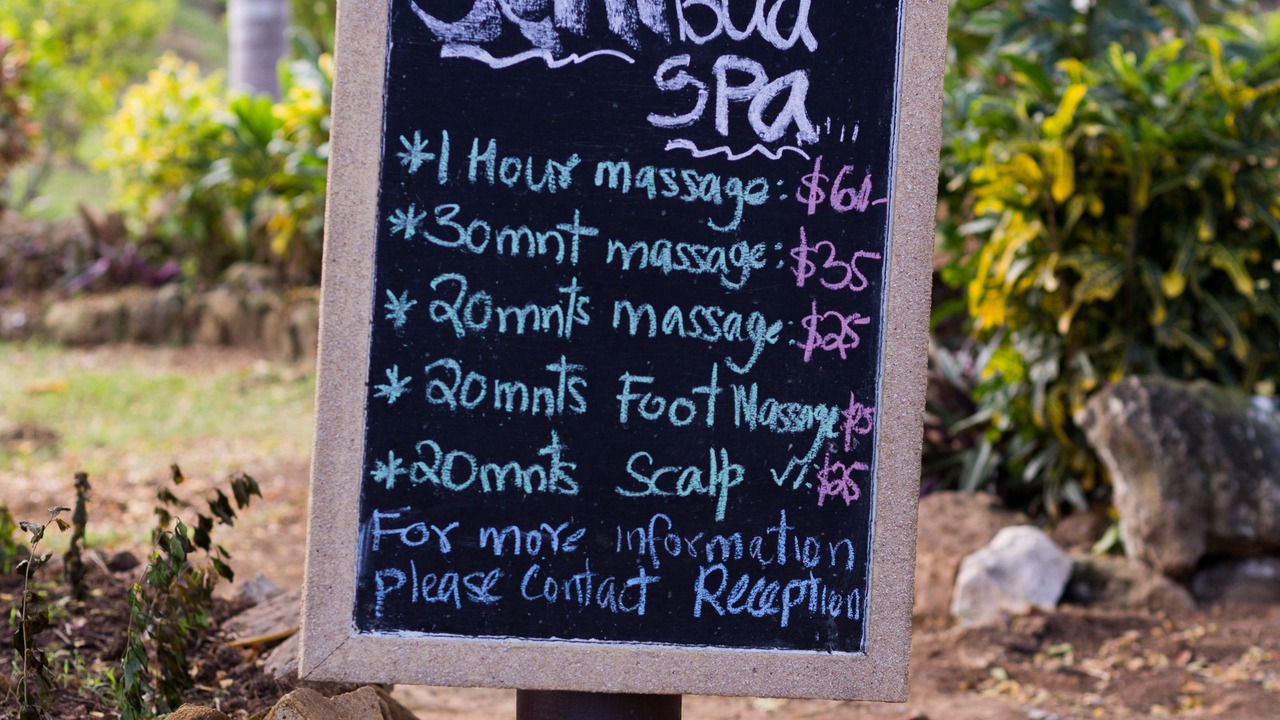 bud
SPa
*1 Hour massage: $60-
*30mnt massage: $35
* 20mnts massage: $25
* 20mnts Foot Massage
*20mnts Scalp $25
For more information
please Contact Reception